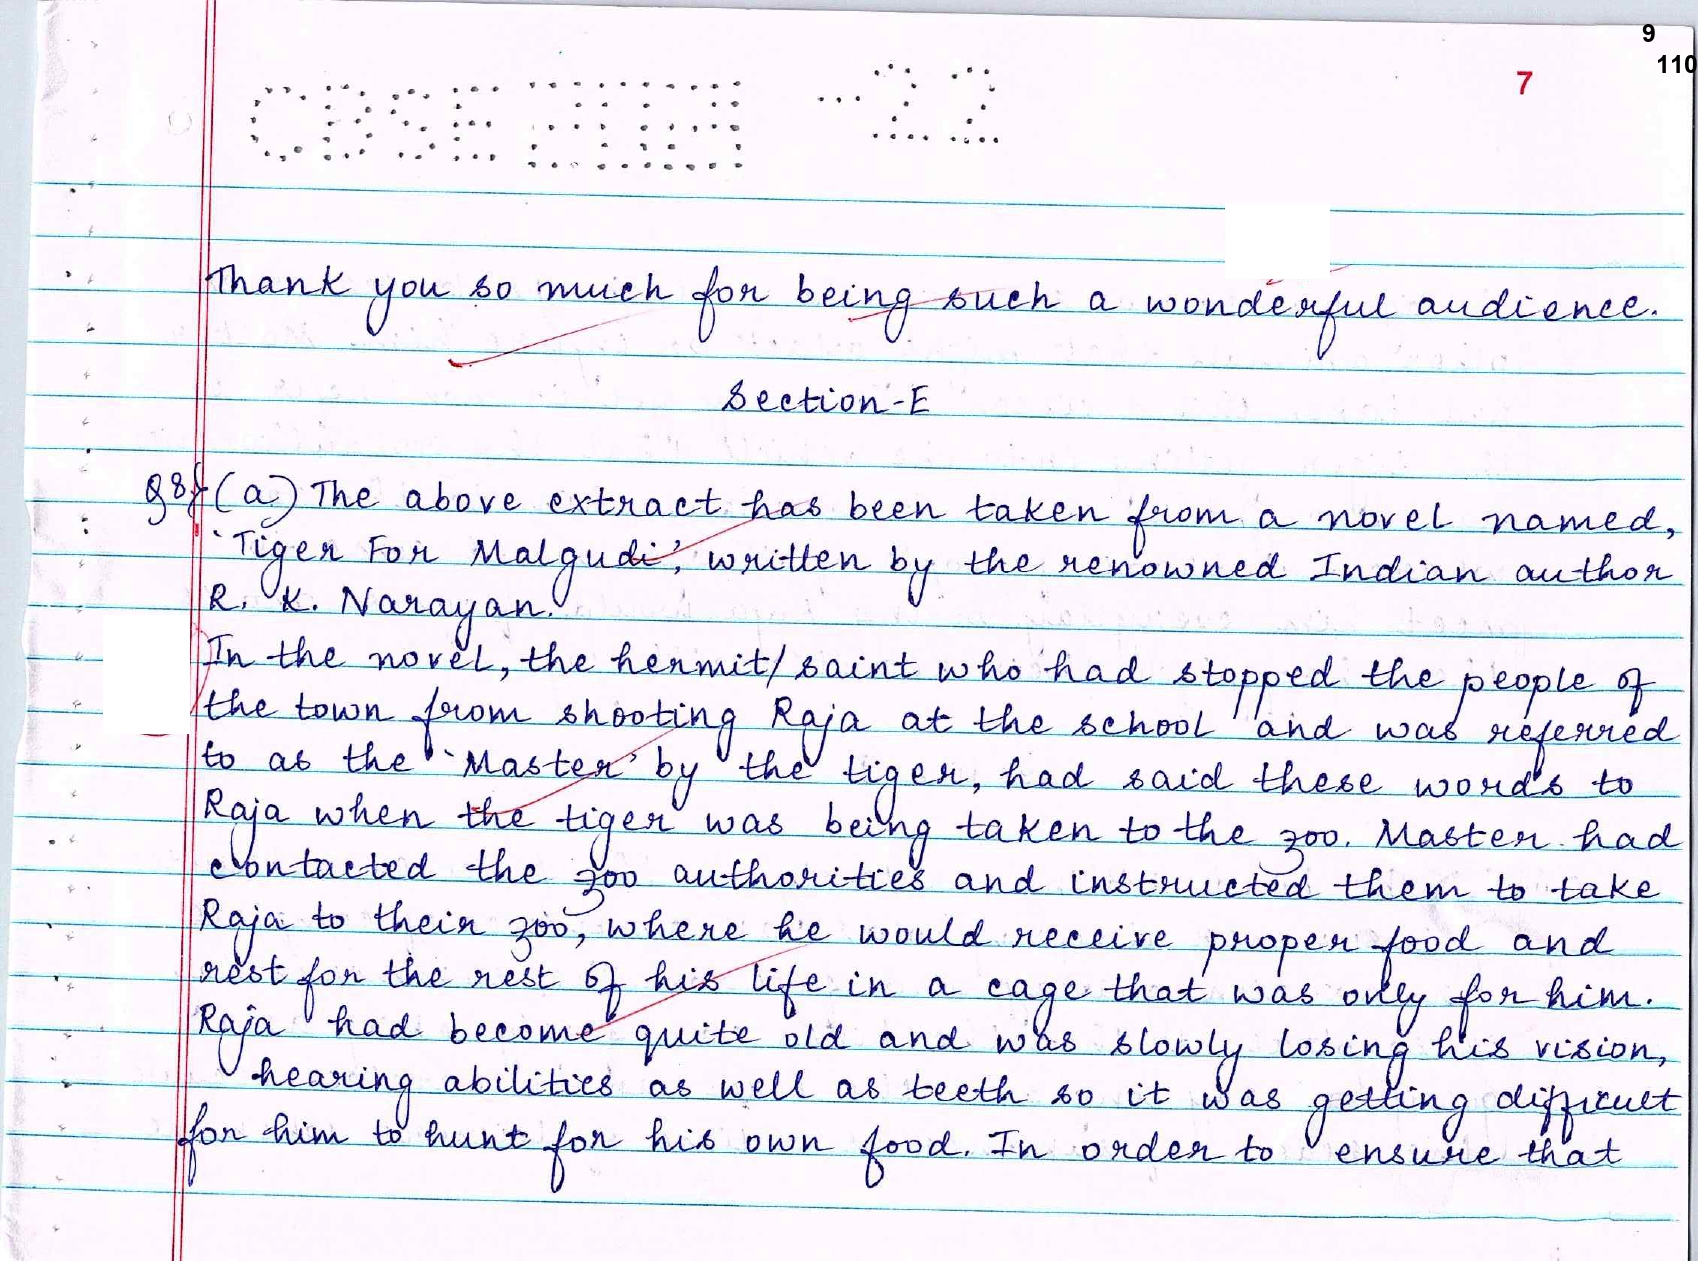 9
110
7
CBSE -22
Thank you so much for being such a wonderful audience.
Section-E
Q8 (a) The above extract has been taken from a novel named,
'Tiger For Malgudi', written by the renowned Indian author
R. K. Narayan.
In the novel, the hermit/saint who had stopped the people of
the town from shooting Raja at the school and was referred
to as the 'Master' by the tiger, had said these words to
Raja when the tiger was being taken to the zoo. Master had
contacted the zoo authorities and instructed them to take
Raja to their zoo, where he would receive proper food and
rest for the rest of his life in a cage that was only for him.
Raja had become quite old and was slowly losing his vision,
hearing abilities as well as teeth so it was getting difficult
for him to hunt for his own food. In order to ensure that